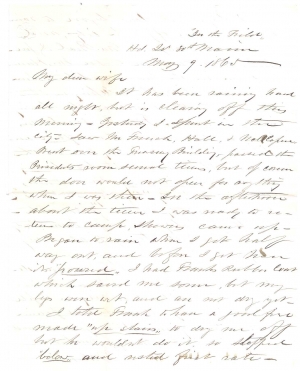 In the Field
Hd Qr Maine
May 9. 1865
My dear wife
It has been raining hard
all night, but is clearing off this
morning - Yesterday I spent in the
city - Saw Mr French, Hall,
over the Treasury Building, passed the
Presidents room several times, but of course
the door would not open for any thing
when I was there - In the afternoon
about the time I was ready to re-
turn to camp, showers came up -
Began to rain when I got half
way out, and before I got here
it poured. I had Franks rubber coat
which saved me some, but my
legs were wet, and are not dry yet
I told Frank to have a good fire
made "up stairs" to dry me off
but he wouldn't do it, so stopped
below and rested first rate -